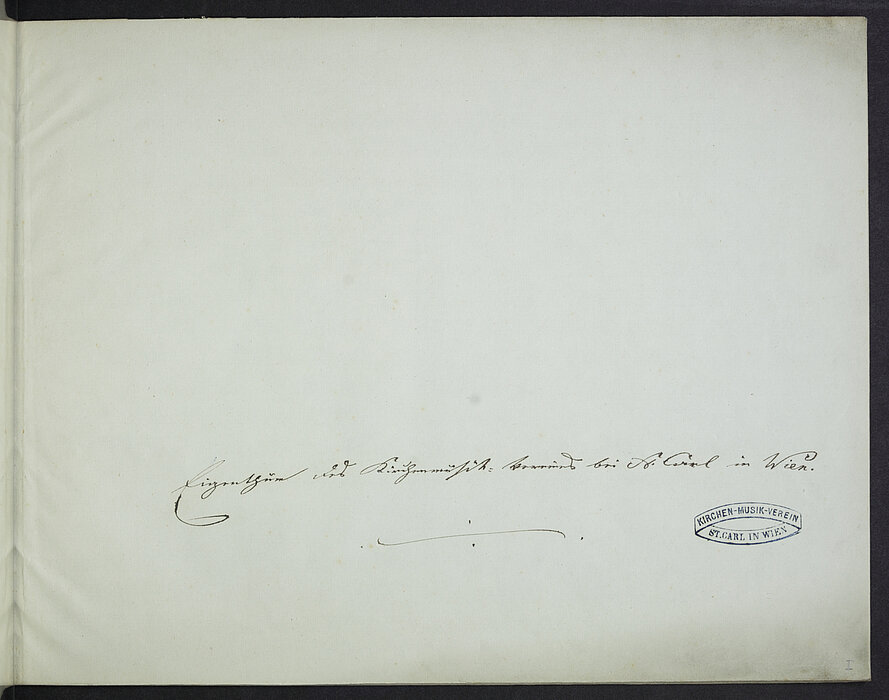 Eigenthum des Kirchenmusik-Vereins bei St. Carl in Wien.
KIRCHEN-MUSIK-VEREIN
ST. CARL IN WIEN
I